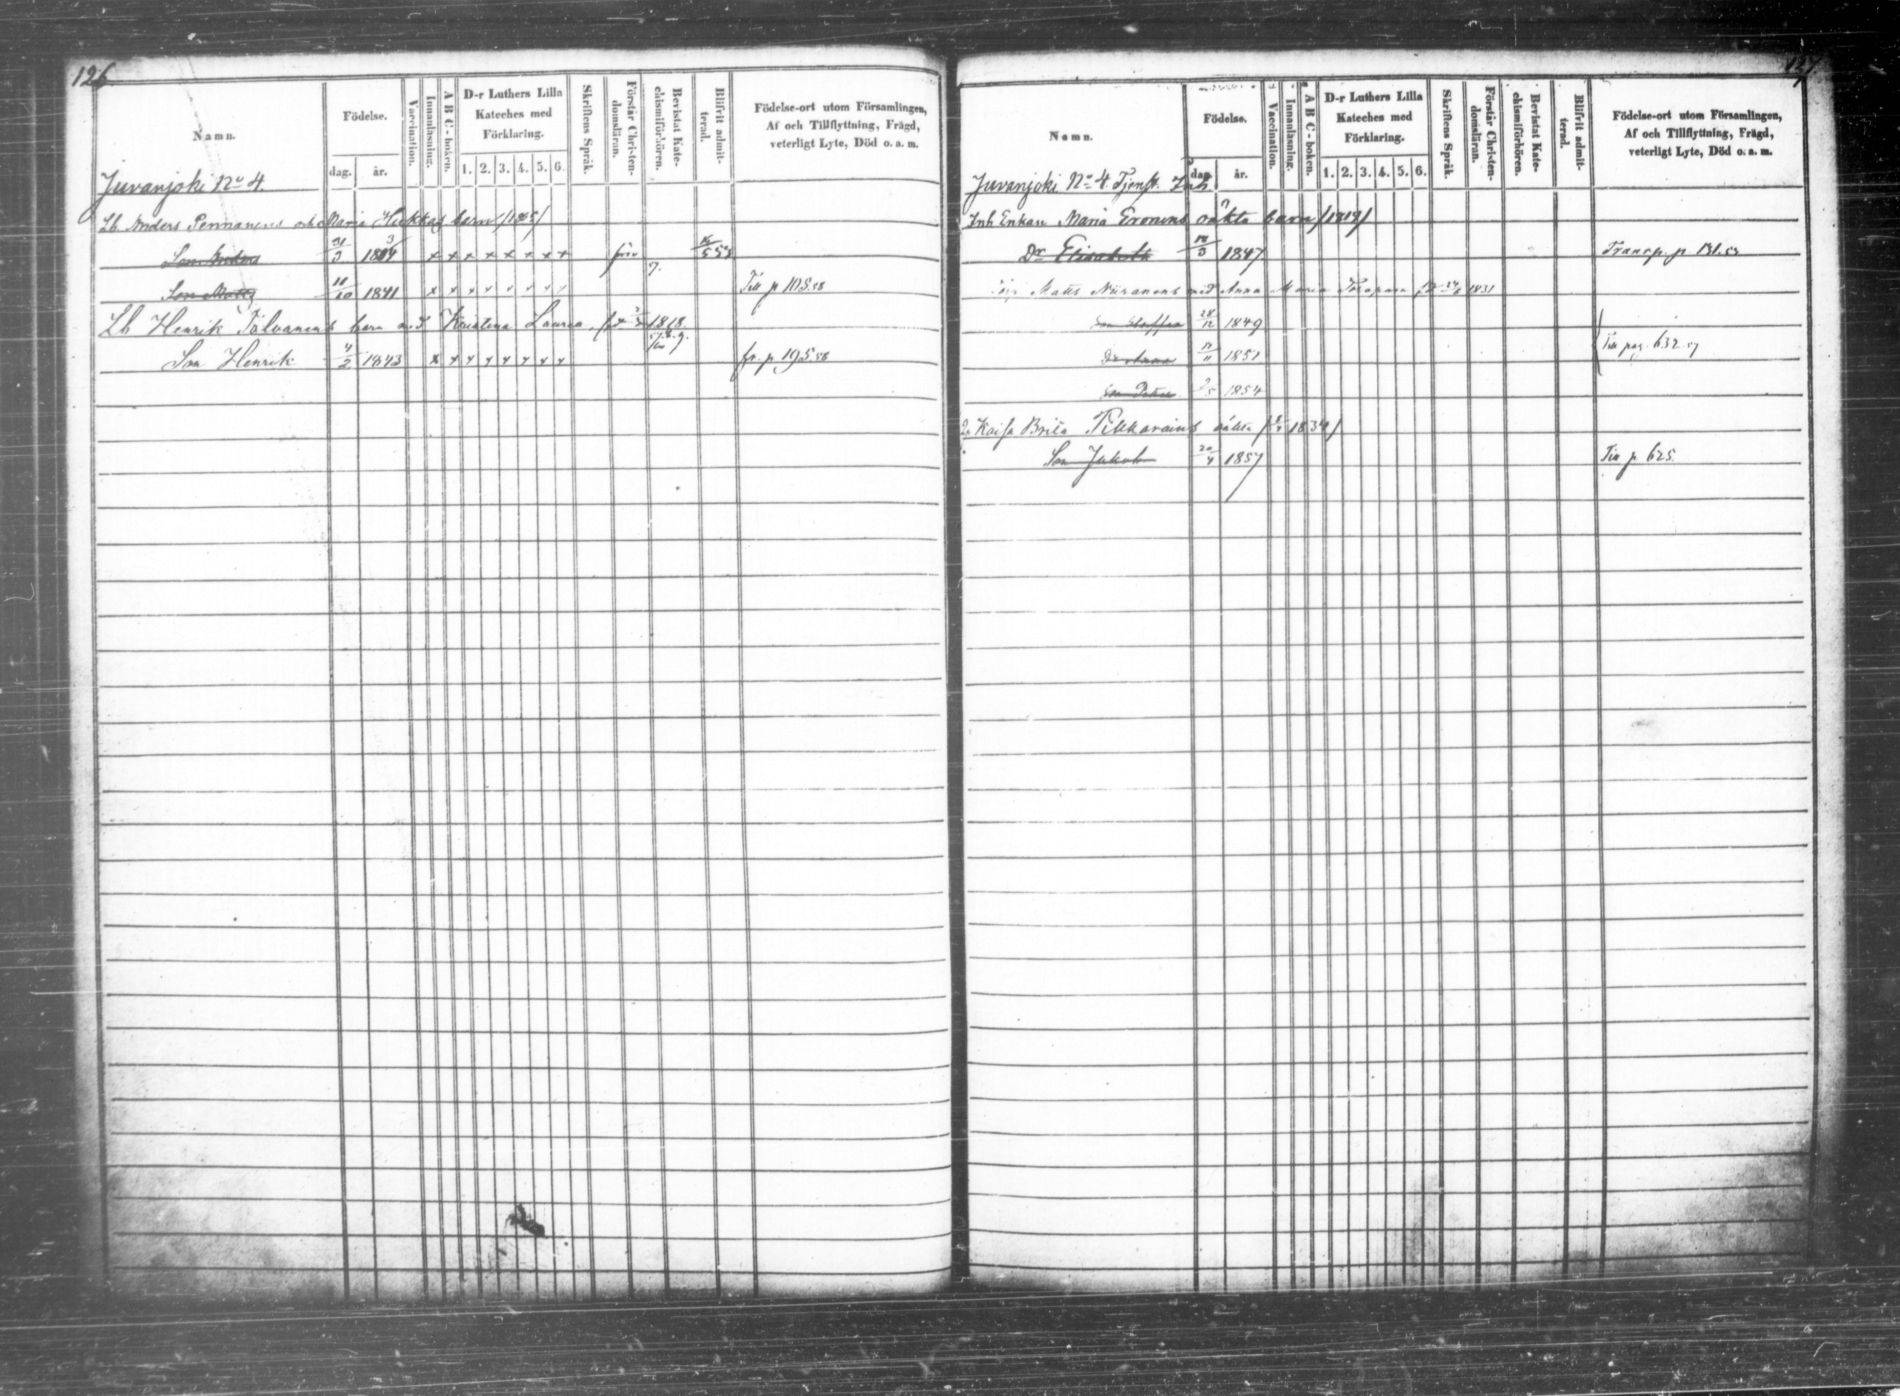 126
Namn.
Födelse.
dag.
år.
Vaccination.
Innanläsning.
A B C-boken.
D-r Luthers Lilla
Kateches med
Förklaring.
1. 2. 3. 4. 5. 6.
Skriftens Språk.
Förstår Christen-
domsläran.
Bevistat Kate-
chismiförhören.
Blifvit admit-
terad.
Födelse-ort utom Församlingen,
Af och Tillflyttning, Frägd,
veterligt Lyte, Död o. a. m.
Juvanjoki No 4
Lb Anders Pennanens och Maria Hukkas barn
Son Anders 31/3 + + + + + + + +
Son Matts 10 1841 + + + + + + + + 7. Till p 105.58
Lb Henrik barn med Kristina Laurea, född 1818.
Son Henrik 4/2 1843 + + + + + + + + fr. p. 195.58
127
Namn.
Födelse.
dag.
år.
Vaccination.
Innanläsning.
A B C-boken.
D-r Luthers Lilla
Kateches med
Förklaring.
1. 2. 3. 4. 5. 6.
Skriftens Språk.
Förstår Christen-
domsläran.
Bevistat Kate-
chismiförhören.
Blifvit admit-
terad.
Födelse-ort utom Församlingen,
Af och Tillflyttning, Frägd,
veterligt Lyte, Död o. a. m.
Juvanjoki No 4. Tjenst. Inh
Inh Enkan Maria Eronens oäkta barn /1819/
Dr Elisabeth 1847 Transp. p 131.53
Matts med Anna Maria 1831
Son Staffan 28/12 1849
Dr Anna 1851 Till pag. 632.57
Son Petter 1854
Kaisa Brita oäkta 1834/
Son Jakob 20/4 1857 Till p 625.